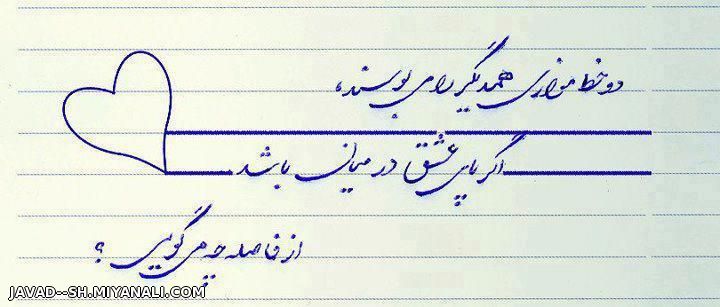 دو خط موازی همدیگر را می بوسند،
اگر پای عشق در میان باشد
از فاصله چه می گویی ؟
JAVAD--SH.MIYANALI.COM